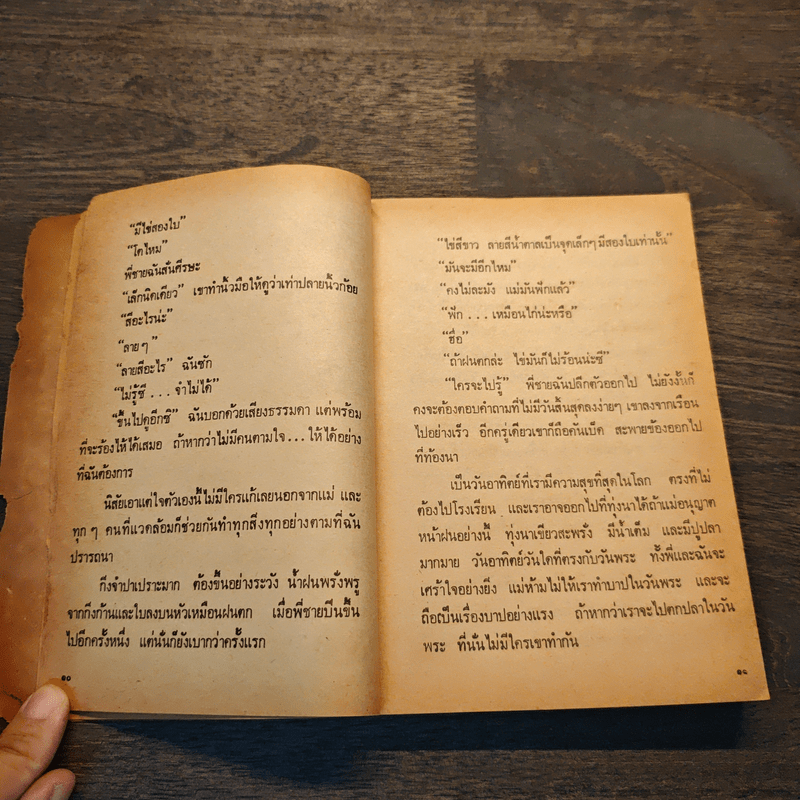 “มีไข่สองใบ”
“โตไหม”
พี่ชายฉันสั่นศีรษะ
“เล็กนิดเดียว” เขาทำนิ้วมือให้ดูว่าเท่าปลายนิ้วก้อย
“สีอะไรน่ะ”
“ลายๆ”
“ลายสีอะไร” ฉันซัก
“ไม่รู้ซี ... จำไม่ได้”
“ขึ้นไปดูอีกซิ” ฉันบอกด้วยเสียงธรรมดา แต่พร้อม
ที่จะร้องไห้ได้เสมอ ถ้าหากว่าไม่มีคนตามใจ ... ให้ได้อย่าง
ที่ฉันต้องการ
นิสัยเอาแต่ใจตัวเองนี้ไม่มีใครแก้เลยนอกจากแม่ และ
ทุก ๆ คนที่แวดล้อมก็ช่วยกันทำทุกสิ่งทุกอย่างตามที่ฉัน
ปรารถนา
กิ่งจำปาเปราะมาก ต้องขึ้นอย่างระวัง น้ำฝนพรั่งพรู
จากกิ่งก้านและใบลงบนหัวเหมือนฝนตก เมื่อพี่ชายปีนขึ้น
ไปอีกครั้งหนึ่ง แต่นั่นก็ยังเบากว่าครั้งแรก
๑๐
“ไข่สีขาว ลายสีน้ำตาลเป็นจุดเล็กๆ มีสองใบเท่านั้น”
“มันจะมีอีกไหม”
“คงไม่ละมัง แม่มันฟักแล้ว”
“ฟัก ... เหมือนไก่น่ะหรือ”
“ฮื่อ”
“ถ้าฝนตกล่ะ ไข่มันก็ไม่ร้อนน่ะซี”
“ใครจะไปรู้” พี่ชายฉันปลีกตัวออกไป ไม่ยังงั้นก็
คงจะต้องตอบคำถามที่ไม่มีวันสิ้นสุดลงง่ายๆ เขาลงจากเรือน
ไปอย่างเร็ว อีกครู่เดียวเขาก็ถือคันเบ็ด สะพายข้องออกไป
ที่ท้องนา
เป็นวันอาทิตย์ที่เรามีความสุขที่สุดในโลก ตรงที่ไม่
ต้องไปโรงเรียน และเราอาจออกไปที่ทุ่งนาได้ถ้าแม่อนุญาต
หน้าฝนอย่างนี้ ทุ่งนาเขียวสะพรั่ง มีน้ำเต็ม และมีปูปลา
มากมาย วันอาทิตย์วันใดที่ตรงกับวันพระ ทั้งพี่และฉันจะ
เศร้าใจอย่างยิ่ง แม่ห้ามไม่ให้เราทำบาปในวันพระ และจะ
ถือเป็นเรื่องบาปอย่างแรง ถ้าหากว่าเราจะไปตกปลาในวัน
พระ ที่นั่นไม่มีใครเขาทำกัน